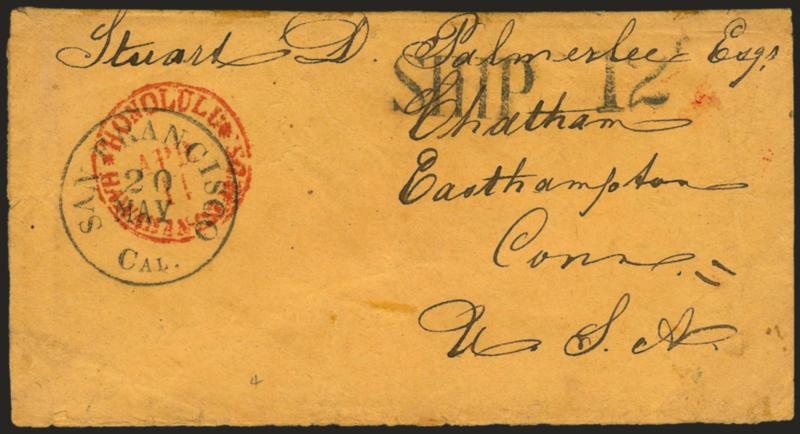 Stuart D. Palmerlee Esqr
Ship 12
Chatham
Easthampton
Conn.
U. S. A.
HONOLULU
SAN FRANCISCO
20
MAY
CAL.